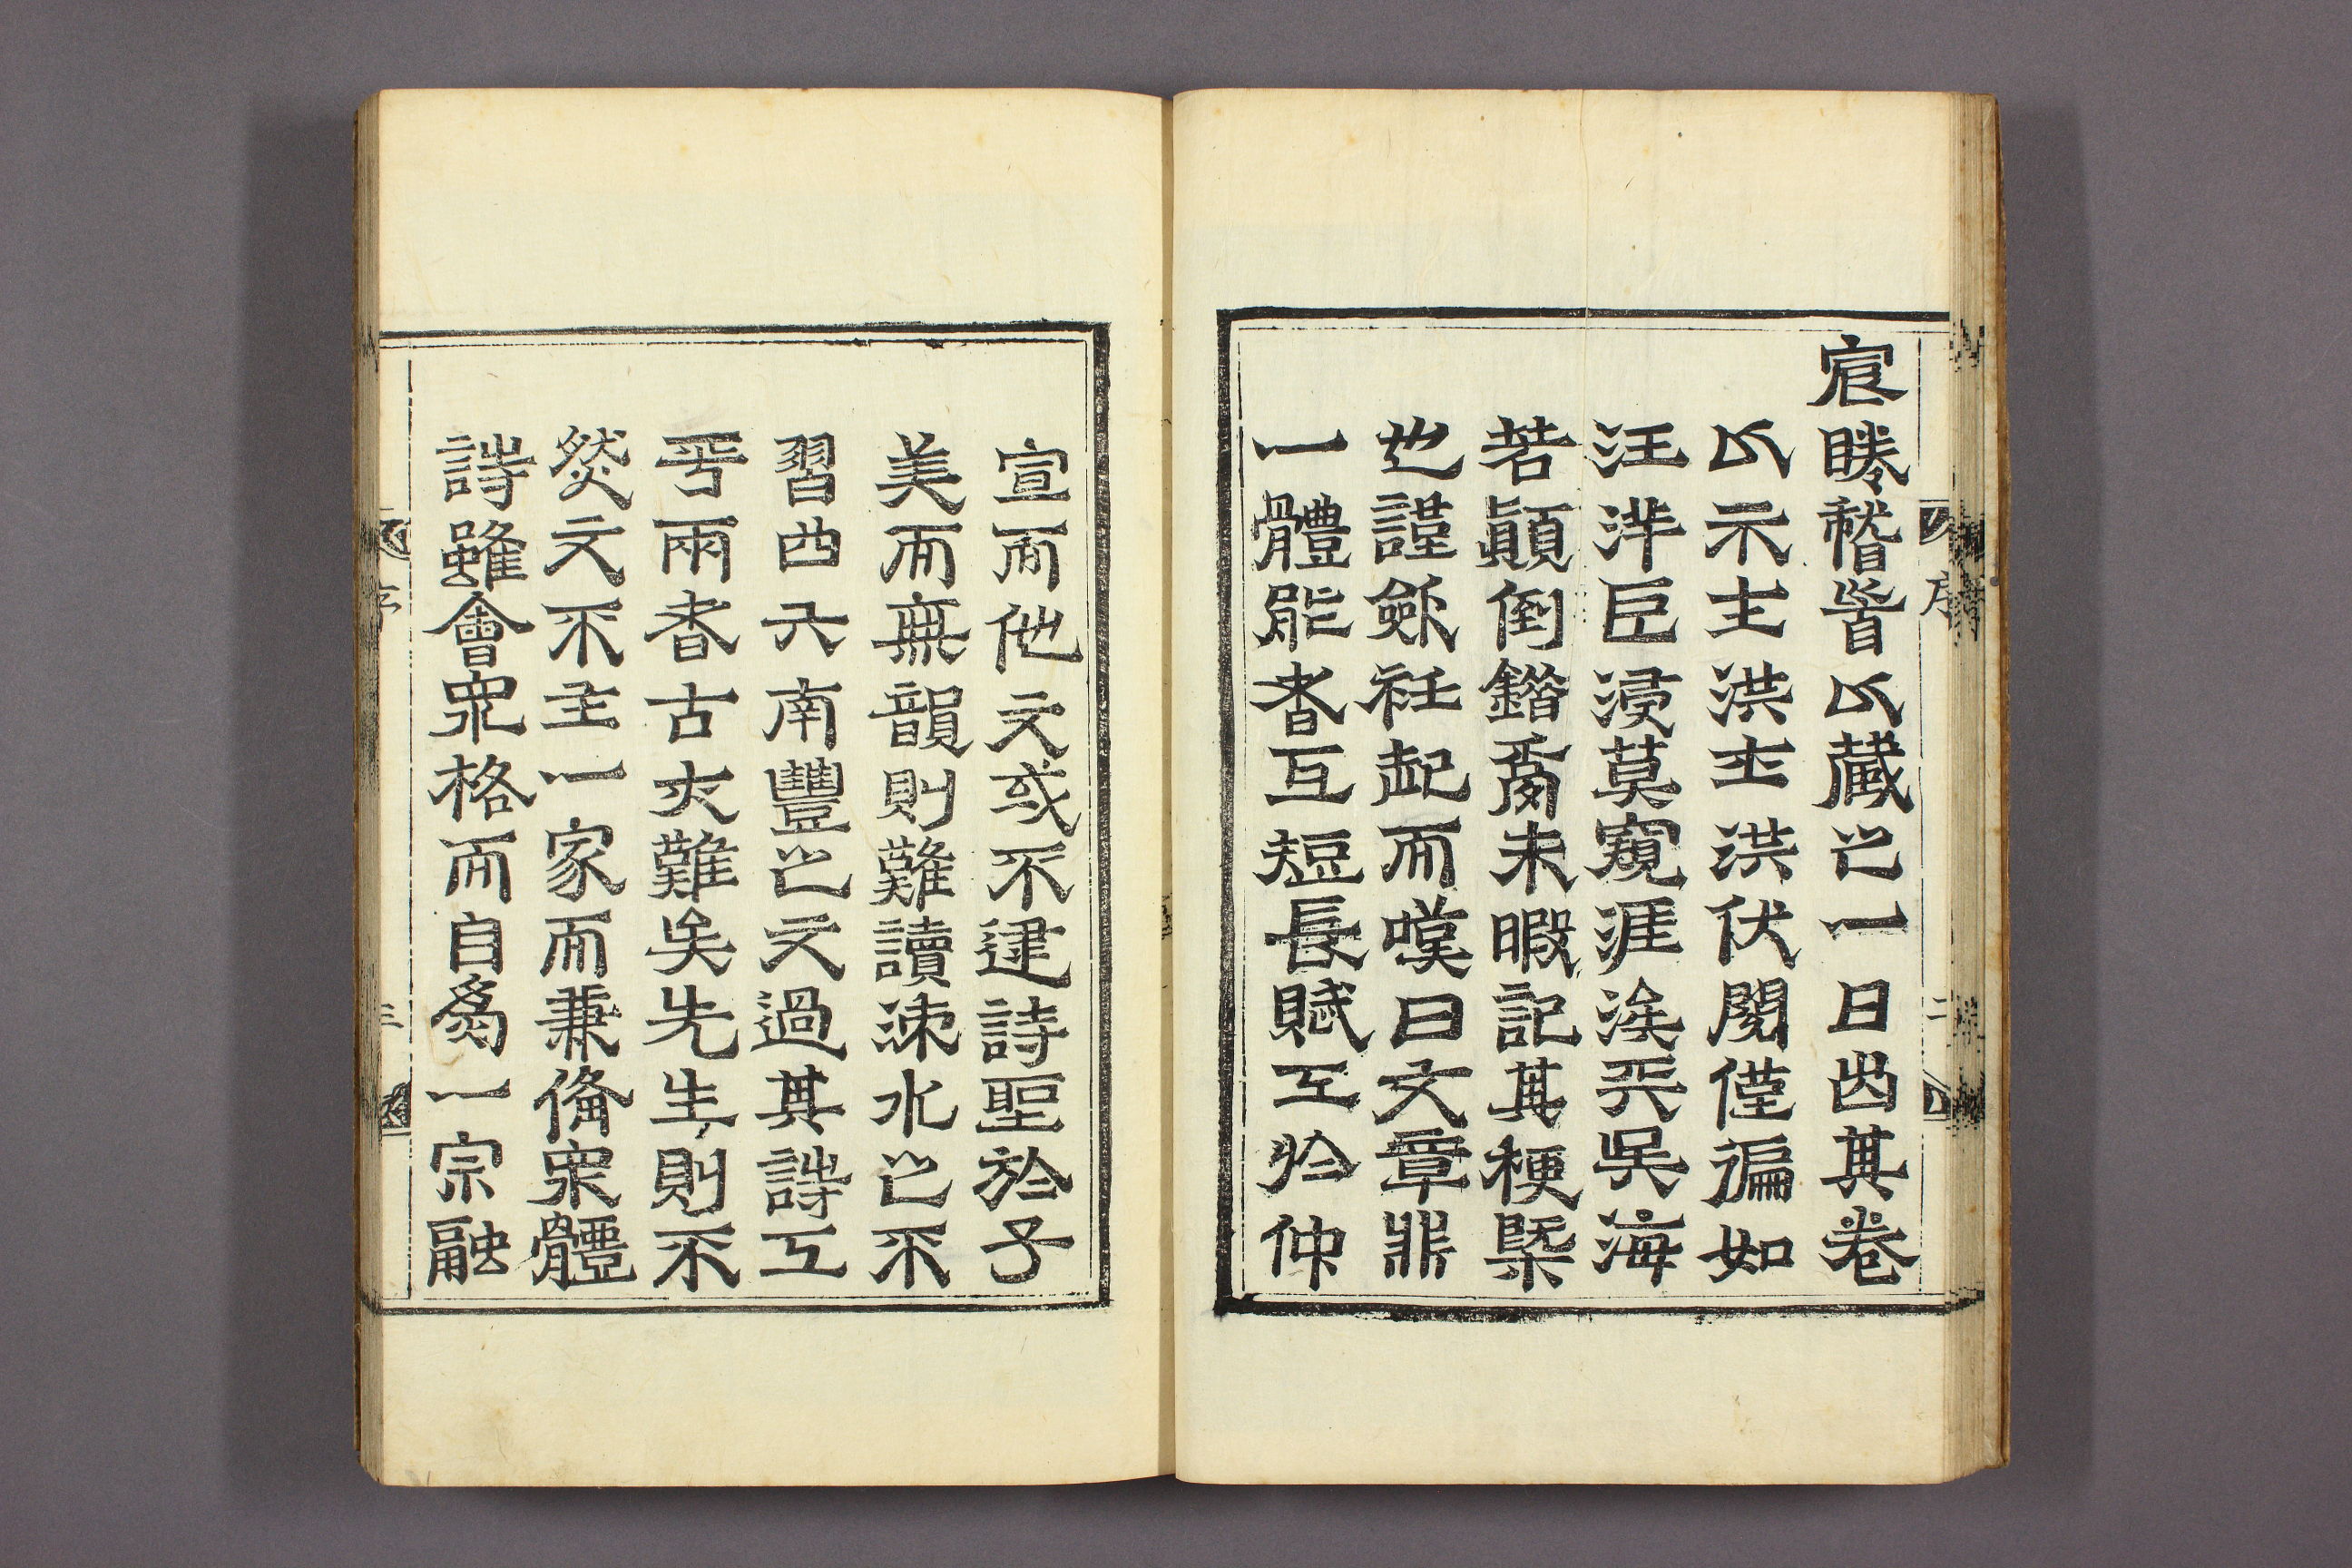 宸睠稽首以藏之一日出其卷
以示主洪主洪伏閱僅徧如
汪洋巨浸莫窺涯涘天吳海
若顛倒錯𤔔未暇記其梗槩
也謹斂衽起而嘆曰文章非
一體能者互短長賦工於仲
宣而他文或不逮詩聖於子
美而無韻則難讀涑水之不
習四六南豐之文過其詩工
乎兩者古亦難矣先生則不
然文不主一家而兼備衆體
詩雖會衆格而自爲一宗融
序
二
序
三